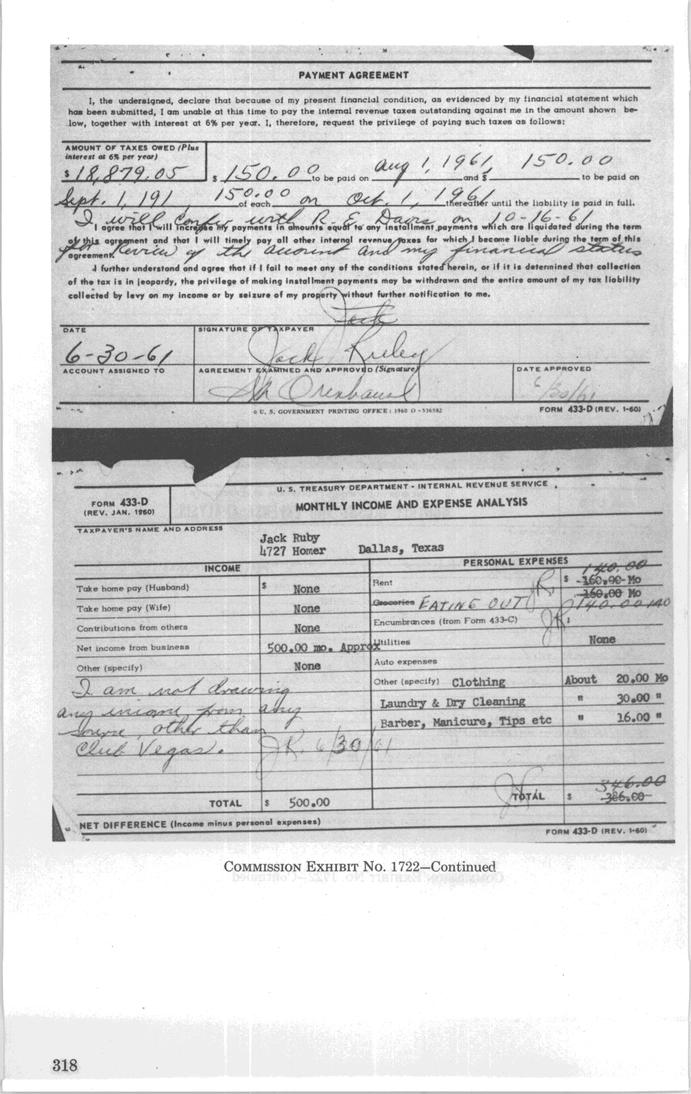 PAYMENT AGREEMENT
I, the undersigned, declare that because of my present financial condition, as evidenced by my financial statement which
has been submitted, I am unable at this time to pay the internal revenue taxes outstanding against me in the amount shown be-
low, together with interest at 6% per year. I, therefore, request the privilege of paying such taxes as follows:
AMOUNT OF TAXES OWED (Plus
interest at 6% per year)
$ 18,879.05 $ 150.00 to be paid on Aug 1, 1961, and $ 150.00 to be paid on
Sept. 1, 191 150.00 of each on Oct. 1, 1961 thereafter until the liability is paid in full.
I will confer with R. E. Davis on 10-16-61
I agree that I will increase my payments in amounts equal to any installment payments which are liquidated during the term
of this agreement and that I will timely pay all other internal revenue taxes for which I become liable during the term of this
for review of the account and my financial status
agreement.
I further understand and agree that if I fail to meet any of the conditions stated herein, or if it is determined that collection
of the tax is in jeopardy, the privilege of making installment payments may be withdrawn and the entire amount of my tax liability
collected by levy on my income or by seizure of my property without further notification to me.
Jack
DATE SIGNATURE OF TAXPAYER
6-30-61 Jack Ruby
ACCOUNT ASSIGNED TO AGREEMENT EXAMINED AND APPROVED (Signature) DATE APPROVED
6/30/61
U. S. GOVERNMENT PRINTING OFFICE: 1960 O-536582 FORM 433-D (REV. 1-60)
FORM 433-D
(REV. JAN. 1960)
U. S. TREASURY DEPARTMENT - INTERNAL REVENUE SERVICE
MONTHLY INCOME AND EXPENSE ANALYSIS
TAXPAYER'S NAME AND ADDRESS
Jack Ruby
4727 Homer Dallas, Texas
INCOME PERSONAL EXPENSES
140.00
Take home pay (Husband) $ None Rent JR $ 160.00 Mo
160.00 Mo
Take home pay (Wife) None Groceries EATING OUT 140.00
Contributions from others None Encumbrances (from Form 433-C) JR
Net income from business 500.00 mo. Approx Utilities None
Other (specify) None Auto expenses
I am not drawing Other (specify) Clothing About 20.00 Mo
any income from any Laundry & Dry Cleaning " 30.00 "
source, other than Barber, Manicure, Tips etc " 16.00 "
Club Vegas. JR. 6/30/61
346.00
TOTAL $ 500.00 TOTAL $ 386.00
NET DIFFERENCE (Income minus personal expenses)
FORM 433-D (REV. 1-60)
COMMISSION EXHIBIT NO. 1722—Continued
318